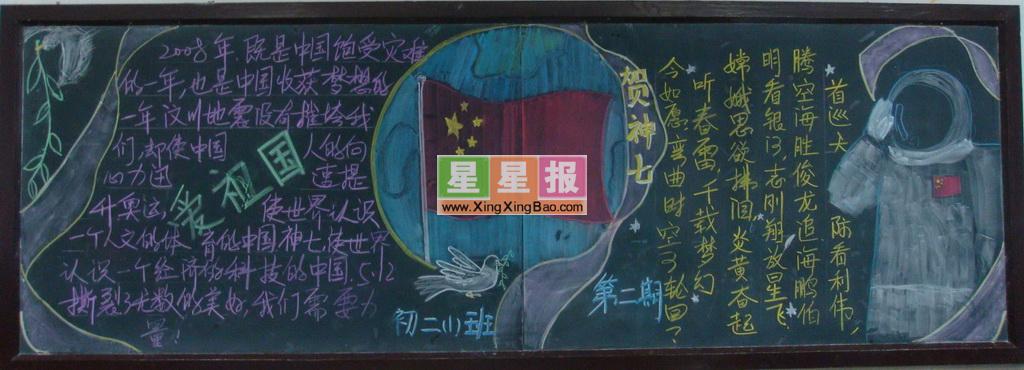 2008年既是中国饱受灾难
的一年,也是中国收获梦想的
一年汶川地震没有摧垮我
们,却使中国人的向
心力迅速提
升奥运,使世界认识
一个人文的体育的中国神七使世界
认识一个经济的科技的中国.5.12
撕裂了无数的美好,我们需要力
量!
爱祖国
星星报
www.XingXingBao.com
初二(1)班
贺神七
第二期
首巡太 际看利伟,
腾空海胜俊龙追海鹏伯
明看银 志刚翔放星飞
嫦娥思欲拂泪炎黄奋起
听春雷,千载梦幻
今如愿 曲时空了轮回?